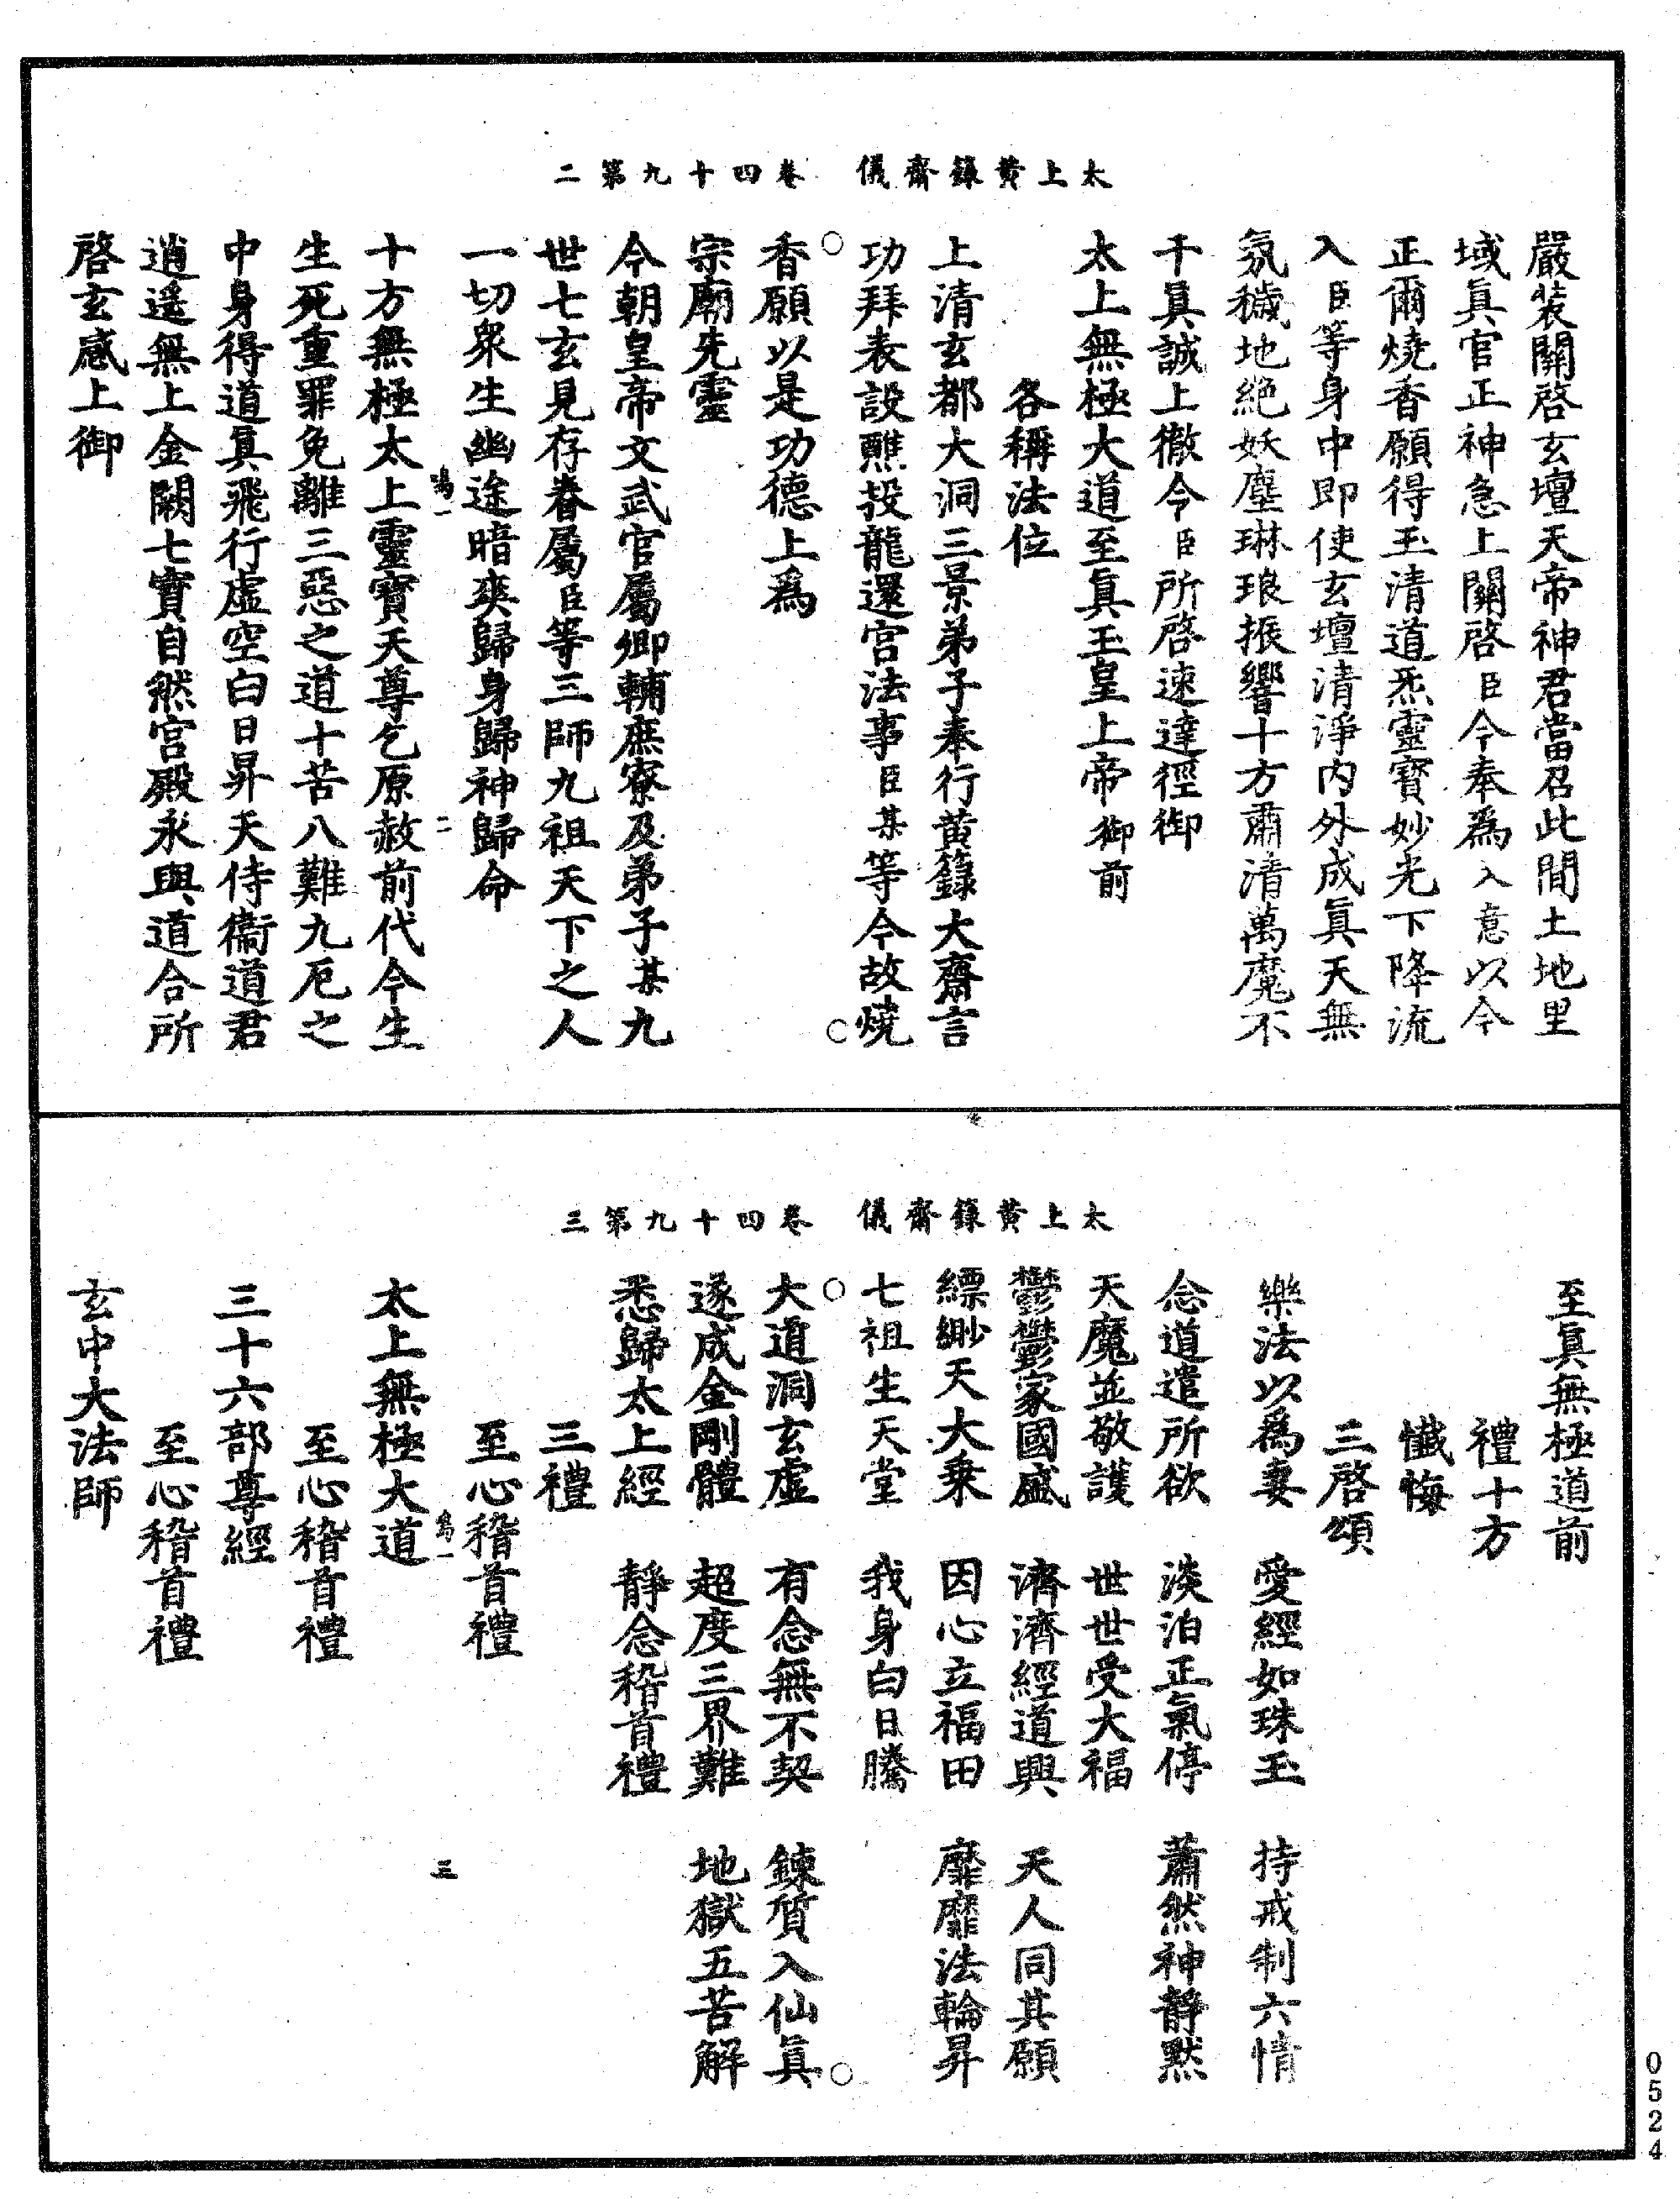 太上黃籙齋儀　卷四十九第二
嚴裝關啓玄壇天帝神君當召此間土地里
域眞官正神急上關啓臣今奉爲入意以今
正爾燒香願得玉清道炁靈寶妙光下降流
入臣等身中即使玄壇清淨內外成眞天無
氛穢地絕妖塵琳琅振響十方肅清萬魔不
干眞誠上徹今臣所啓速達徑御
太上無極大道至眞玉皇上帝御前
各稱法位
上清玄都大洞三景弟子奉行黃籙大齋言
功拜表設醮投龍還宮法事臣某等今故燒
香願以是功德上爲
宗廟先靈
今朝皇帝文武官屬卿輔庶寮及弟子某九
世七玄見存眷屬臣等三師九祖天下之人
一切衆生幽途暗爽歸身歸神歸命
鳴一　二
十方無極太上靈寶天尊乞原赦前代今生
生死重罪免離三惡之道十苦八難九厄之
中身得道眞飛行虛空白日昇天侍衞道君
逍遙無上金闕七寶自然宮殿永與道合所
啓玄感上御
太上黃籙齋儀　卷四十九第三
至眞無極道前
禮十方
懺悔
三啓頌
樂法以爲妻　愛經如珠玉　持戒制六情
念道遣所欲　淡泊正氣停　蕭然神靜默
天魔並敬護　世世受大福
鬱鬱家國盛　濟濟經道興　天人同其願
縹緲天大乘　因心立福田　靡靡法輪昇
七祖生天堂　我身白日騰
大道洞玄虛　有念無不契　鍊質入仙眞
遂成金剛體　超度三界難　地獄五苦解
悉歸太上經　靜念稽首禮
三禮
至心稽首禮
鳴一　三
太上無極大道
至心稽首禮
三十六部尊經
至心稽首禮
玄中大法師
0524